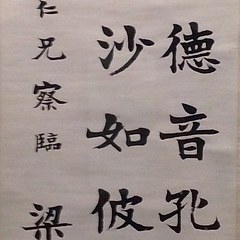 德音孔
沙如彼
仁兄察臨 梁